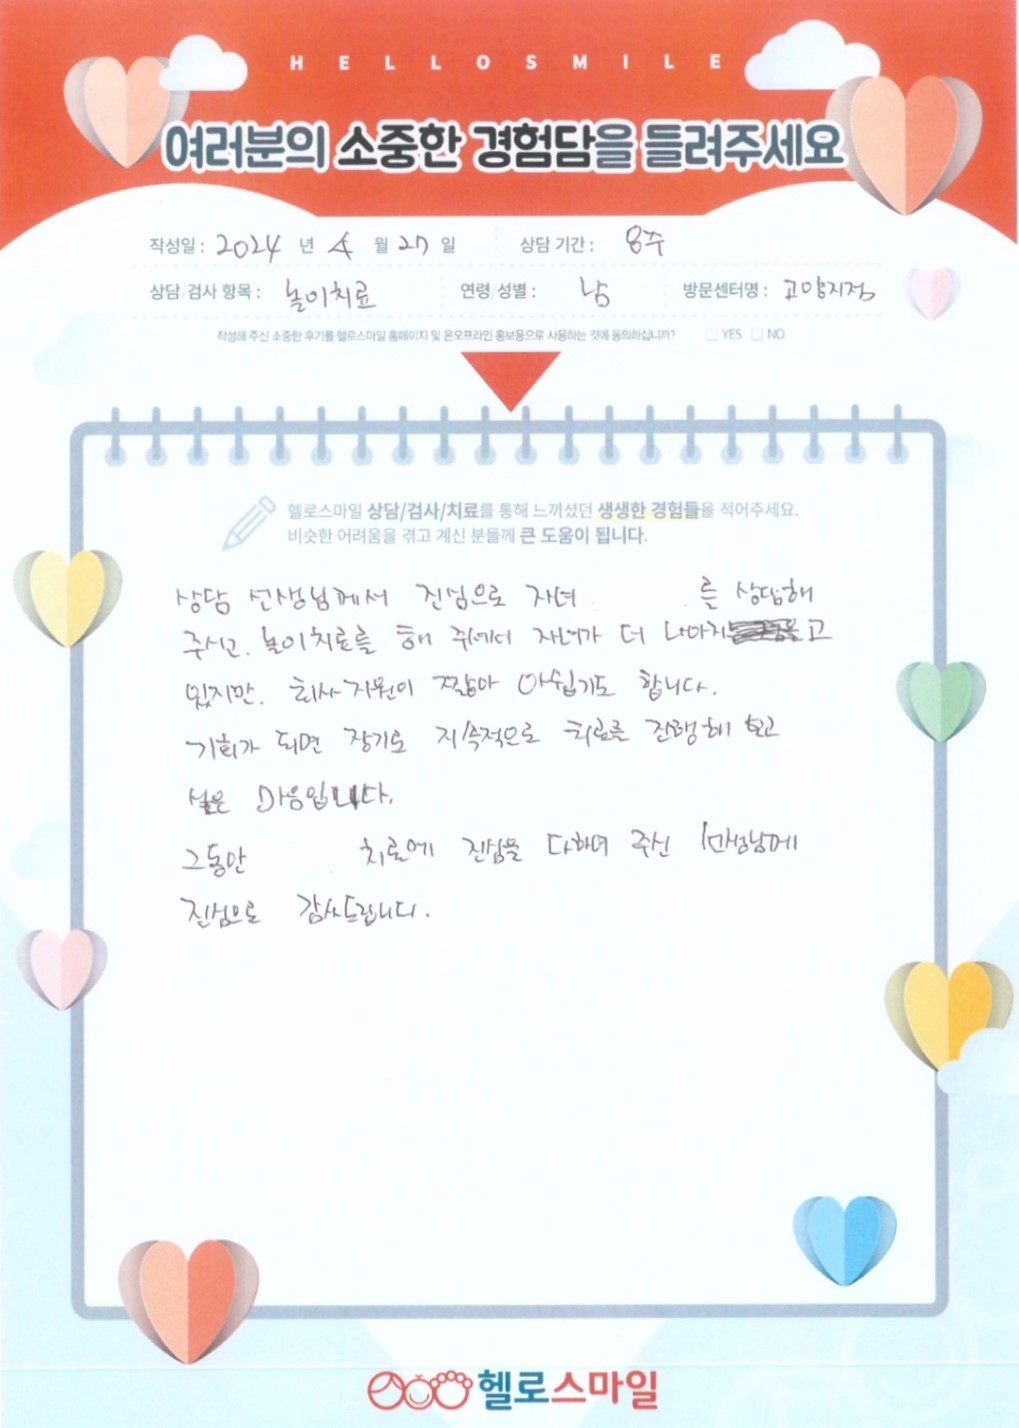 HELLOSMILE
여러분의 소중한 경험담을 들려주세요
작성일 : 2024 년 4 월 27 일 상담 기간 : 8주
상담/검사 항목 : 놀이치료 연령/성별 : 남 방문센터명 : 고양지점
작성해 주신 소중한 후기를 헬로스마일 홈페이지 및 온오프라인 홍보용으로 사용하는 것에 동의하십니까? YES NO
헬로스마일 상담/검사/치료를 통해 느끼셨던 생생한 경험들을 적어주세요.
비슷한 어려움을 겪고 계신 분들께 큰 도움이 됩니다.
상담 선생님께서 진심으로 자녀 를 상담해
주시고, 놀이치료를 해 주셔서 자녀가 더 나아지고
있지만, 회사지원이 짧아 아쉽기도 합니다.
기회가 되면 장기로 지속적으로 치료를 진행해 보고
싶은 마음입니다.
그동안 치료에 진심을 다하여 주신 선생님께
진심으로 감사드립니다.
헬로스마일